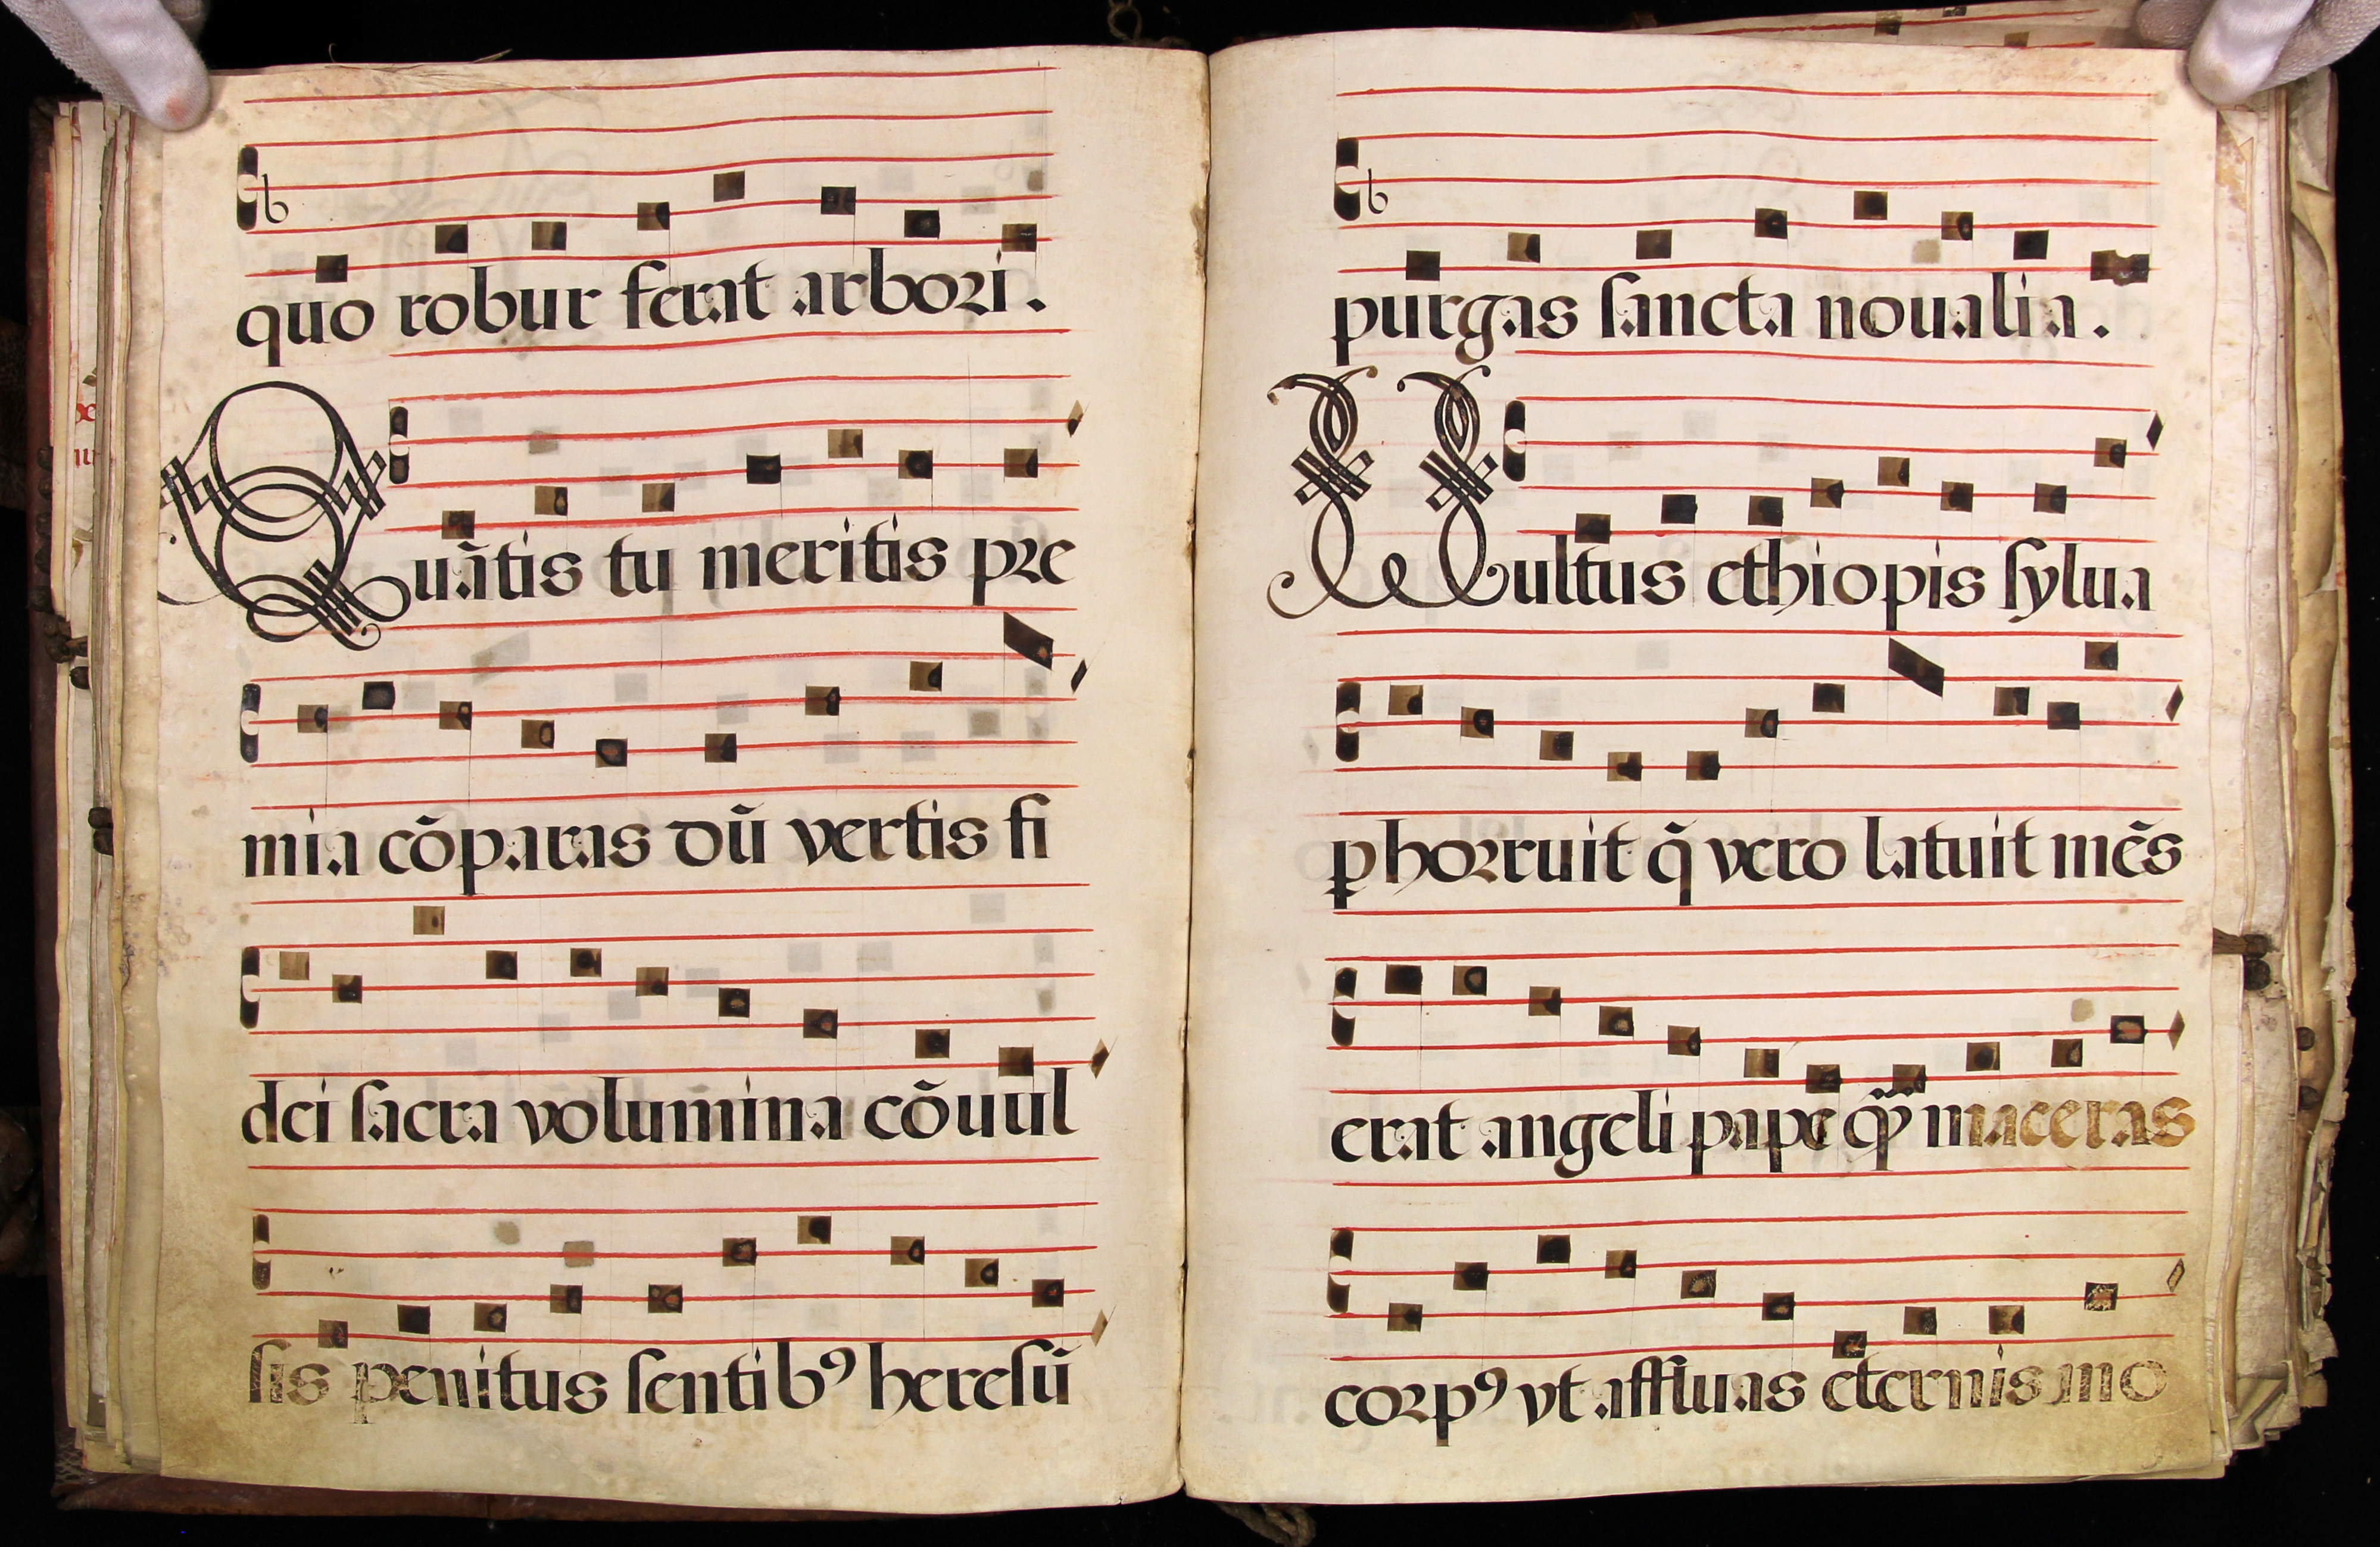 quo robur ferat arbori.
Quãtis tu meritis pre
mia cõparas dũ vertis fi
dei sacra volumina cõuul
sis penitus sentibꝰ heresũ
purgas sancta noualia.
Uultus ethiopis sylua
ꝑhorruit q̃ vero latuit mẽs
erat angeli pape maceras
corpꝰ vt affluas eternis mo